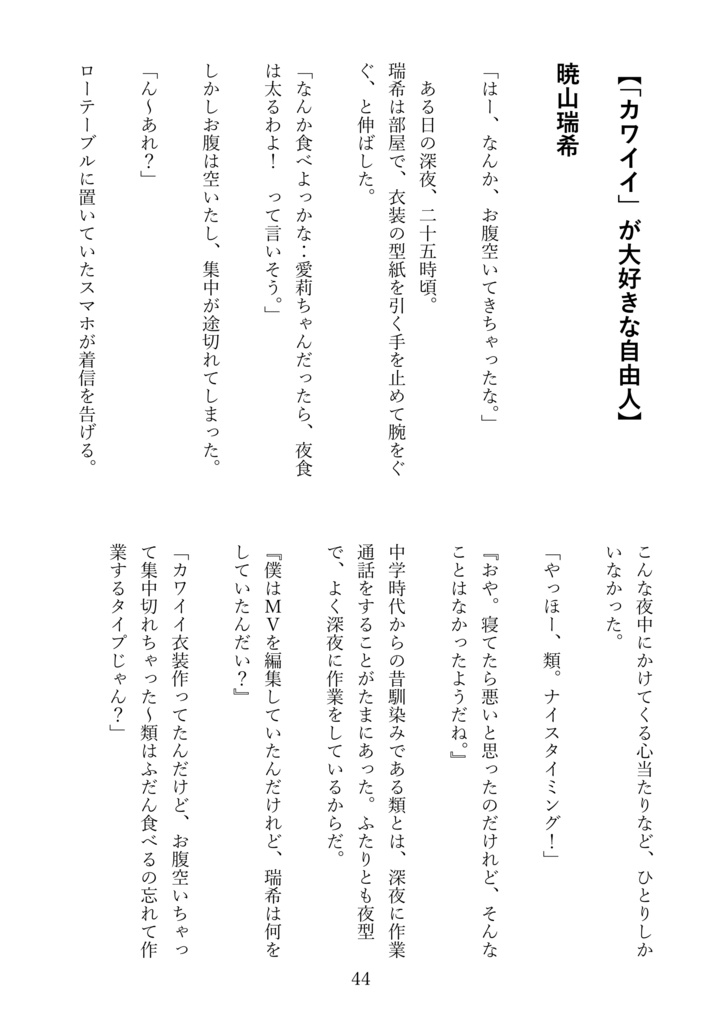 【「カワイイ」が大好きな自由人】
暁山瑞希
「はー、なんか、お腹空いてきちゃったな。」
ある日の深夜、二十五時頃。
瑞希は部屋で、衣装の型紙を引く手を止めて腕をぐ
ぐ、と伸ばした。
「なんか食べよっかな‥愛莉ちゃんだったら、夜食
は太るわよ！　って言いそう。」
しかしお腹は空いたし、集中が途切れてしまった。
「ん〜あれ？」
ローテーブルに置いていたスマホが着信を告げる。
こんな夜中にかけてくる心当たりなど、ひとりしか
いなかった。
「やっほー、類。ナイスタイミング！」
『おや。寝てたら悪いと思ったのだけれど、そんな
ことはなかったようだね。』
中学時代からの昔馴染みである類とは、深夜に作業
通話をすることがたまにあった。ふたりとも夜型
で、よく深夜に作業をしているからだ。
『僕はＭＶを編集していたんだけれど、瑞希は何を
していたんだい？』
「カワイイ衣装作ってたんだけど、お腹空いちゃっ
て集中切れちゃった〜類はふだん食べるの忘れて作
業するタイプじゃん？」
44